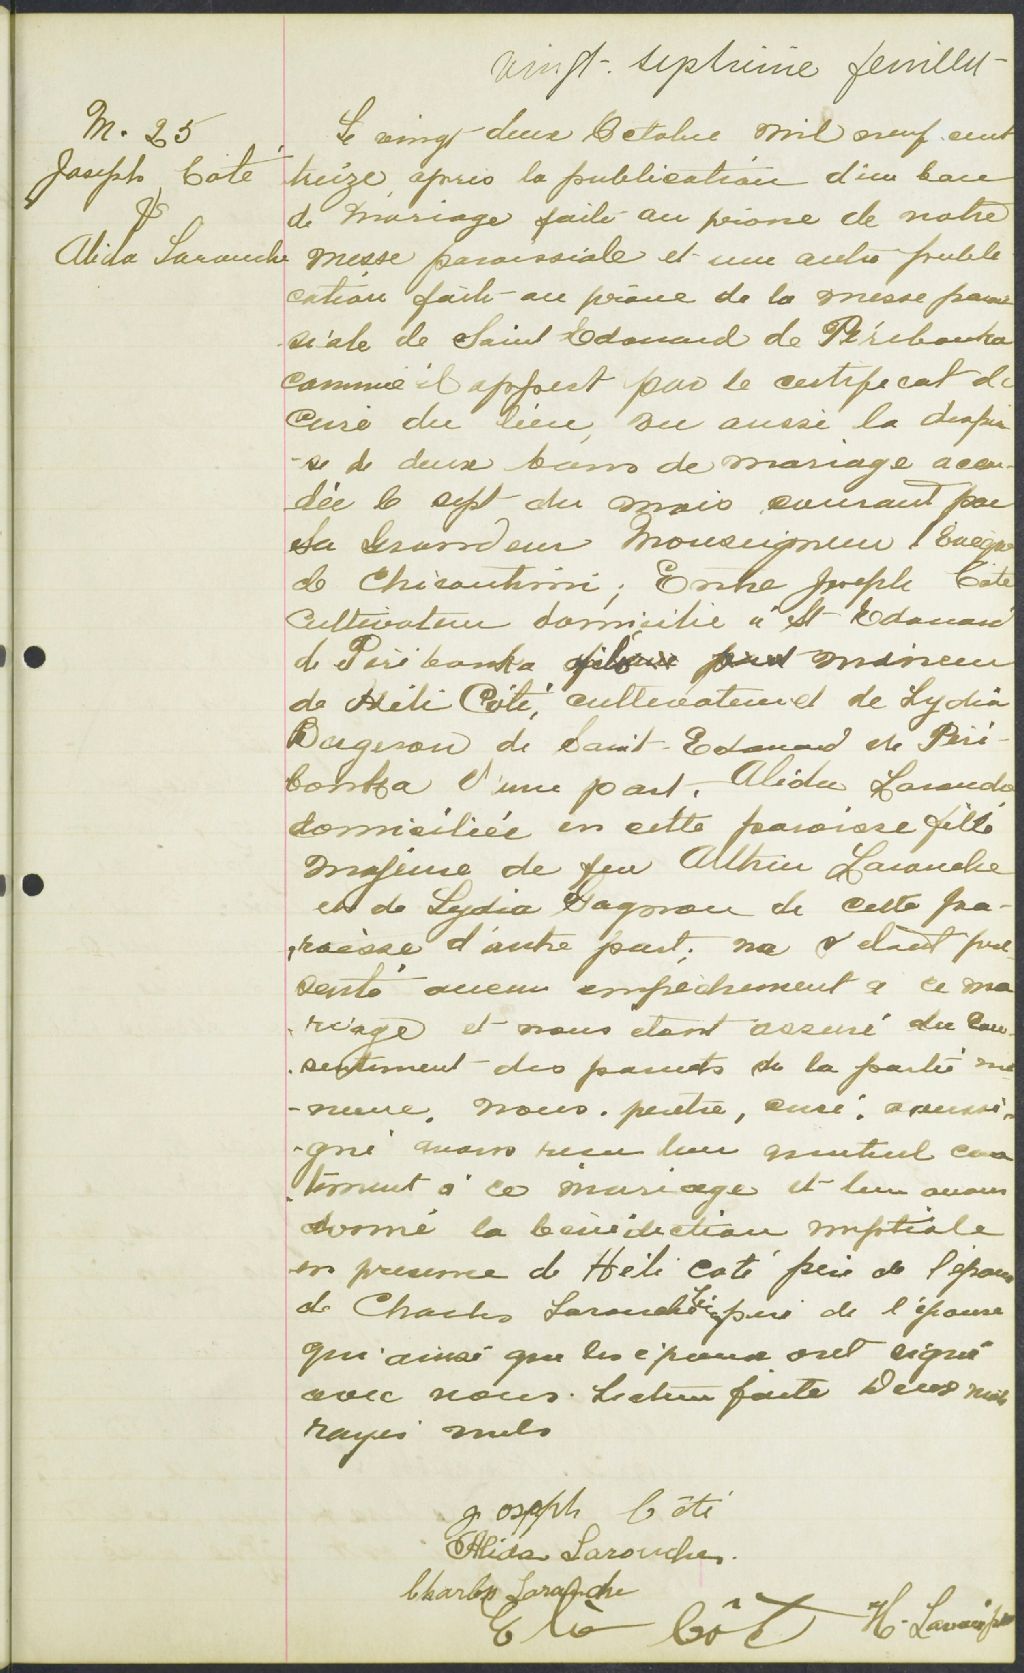 vingt-septième feuillet
M. 25
Joseph Coté
&
Alida Larouche
Le vingt-deux Octobre mil neuf cent
treize après la publication d'un ban
de mariage faite au prône de notre
messe paroissiale et une autre publi
cation faite au prône de la messe parois
siale de Saint Edouard de Péribonka
comme il appert par le certificat du
Curé du lieu, vu aussi la dispen
-se de deux bans de mariage accor-
dée le sept du mois courant par
Sa Grandeur Monseigneur l'Evêque
de Chicoutimi; Entre Joseph Côté
cultivateur domicilié à St Edouard
de Péribonka mineur
de Héli Côté, cultivateur et de Lydia
Bergeron de Saint-Edouard de Péri-
bonka d'une part, Alida Larouche
domiciliée en cette paroisse fille
majeure de feu Larouche
et de Lydia Gagnon de cette pa-
roisse d'autre part; ne s'étant pré
senté aucun empêchement à ce ma
riage et nous étant assuré du con-
sentiment des parents de la partie mi
-neure, nous, prêtre, curé, soussi-
-gné avons reçu leur mutuel consen
tement à ce mariage et leur avons
donné la bénédiction nuptiale
en présence de Héli Coté père de l'époux
de Charles Larouche père de l'épouse
qui ainsi que les époux ont signé
avec nous. Lecture faite Deux mots
rayés nuls
Joseph Côté
Alida Larouche.
Charles Larouche
Elie Côté H. Lavoie ptre